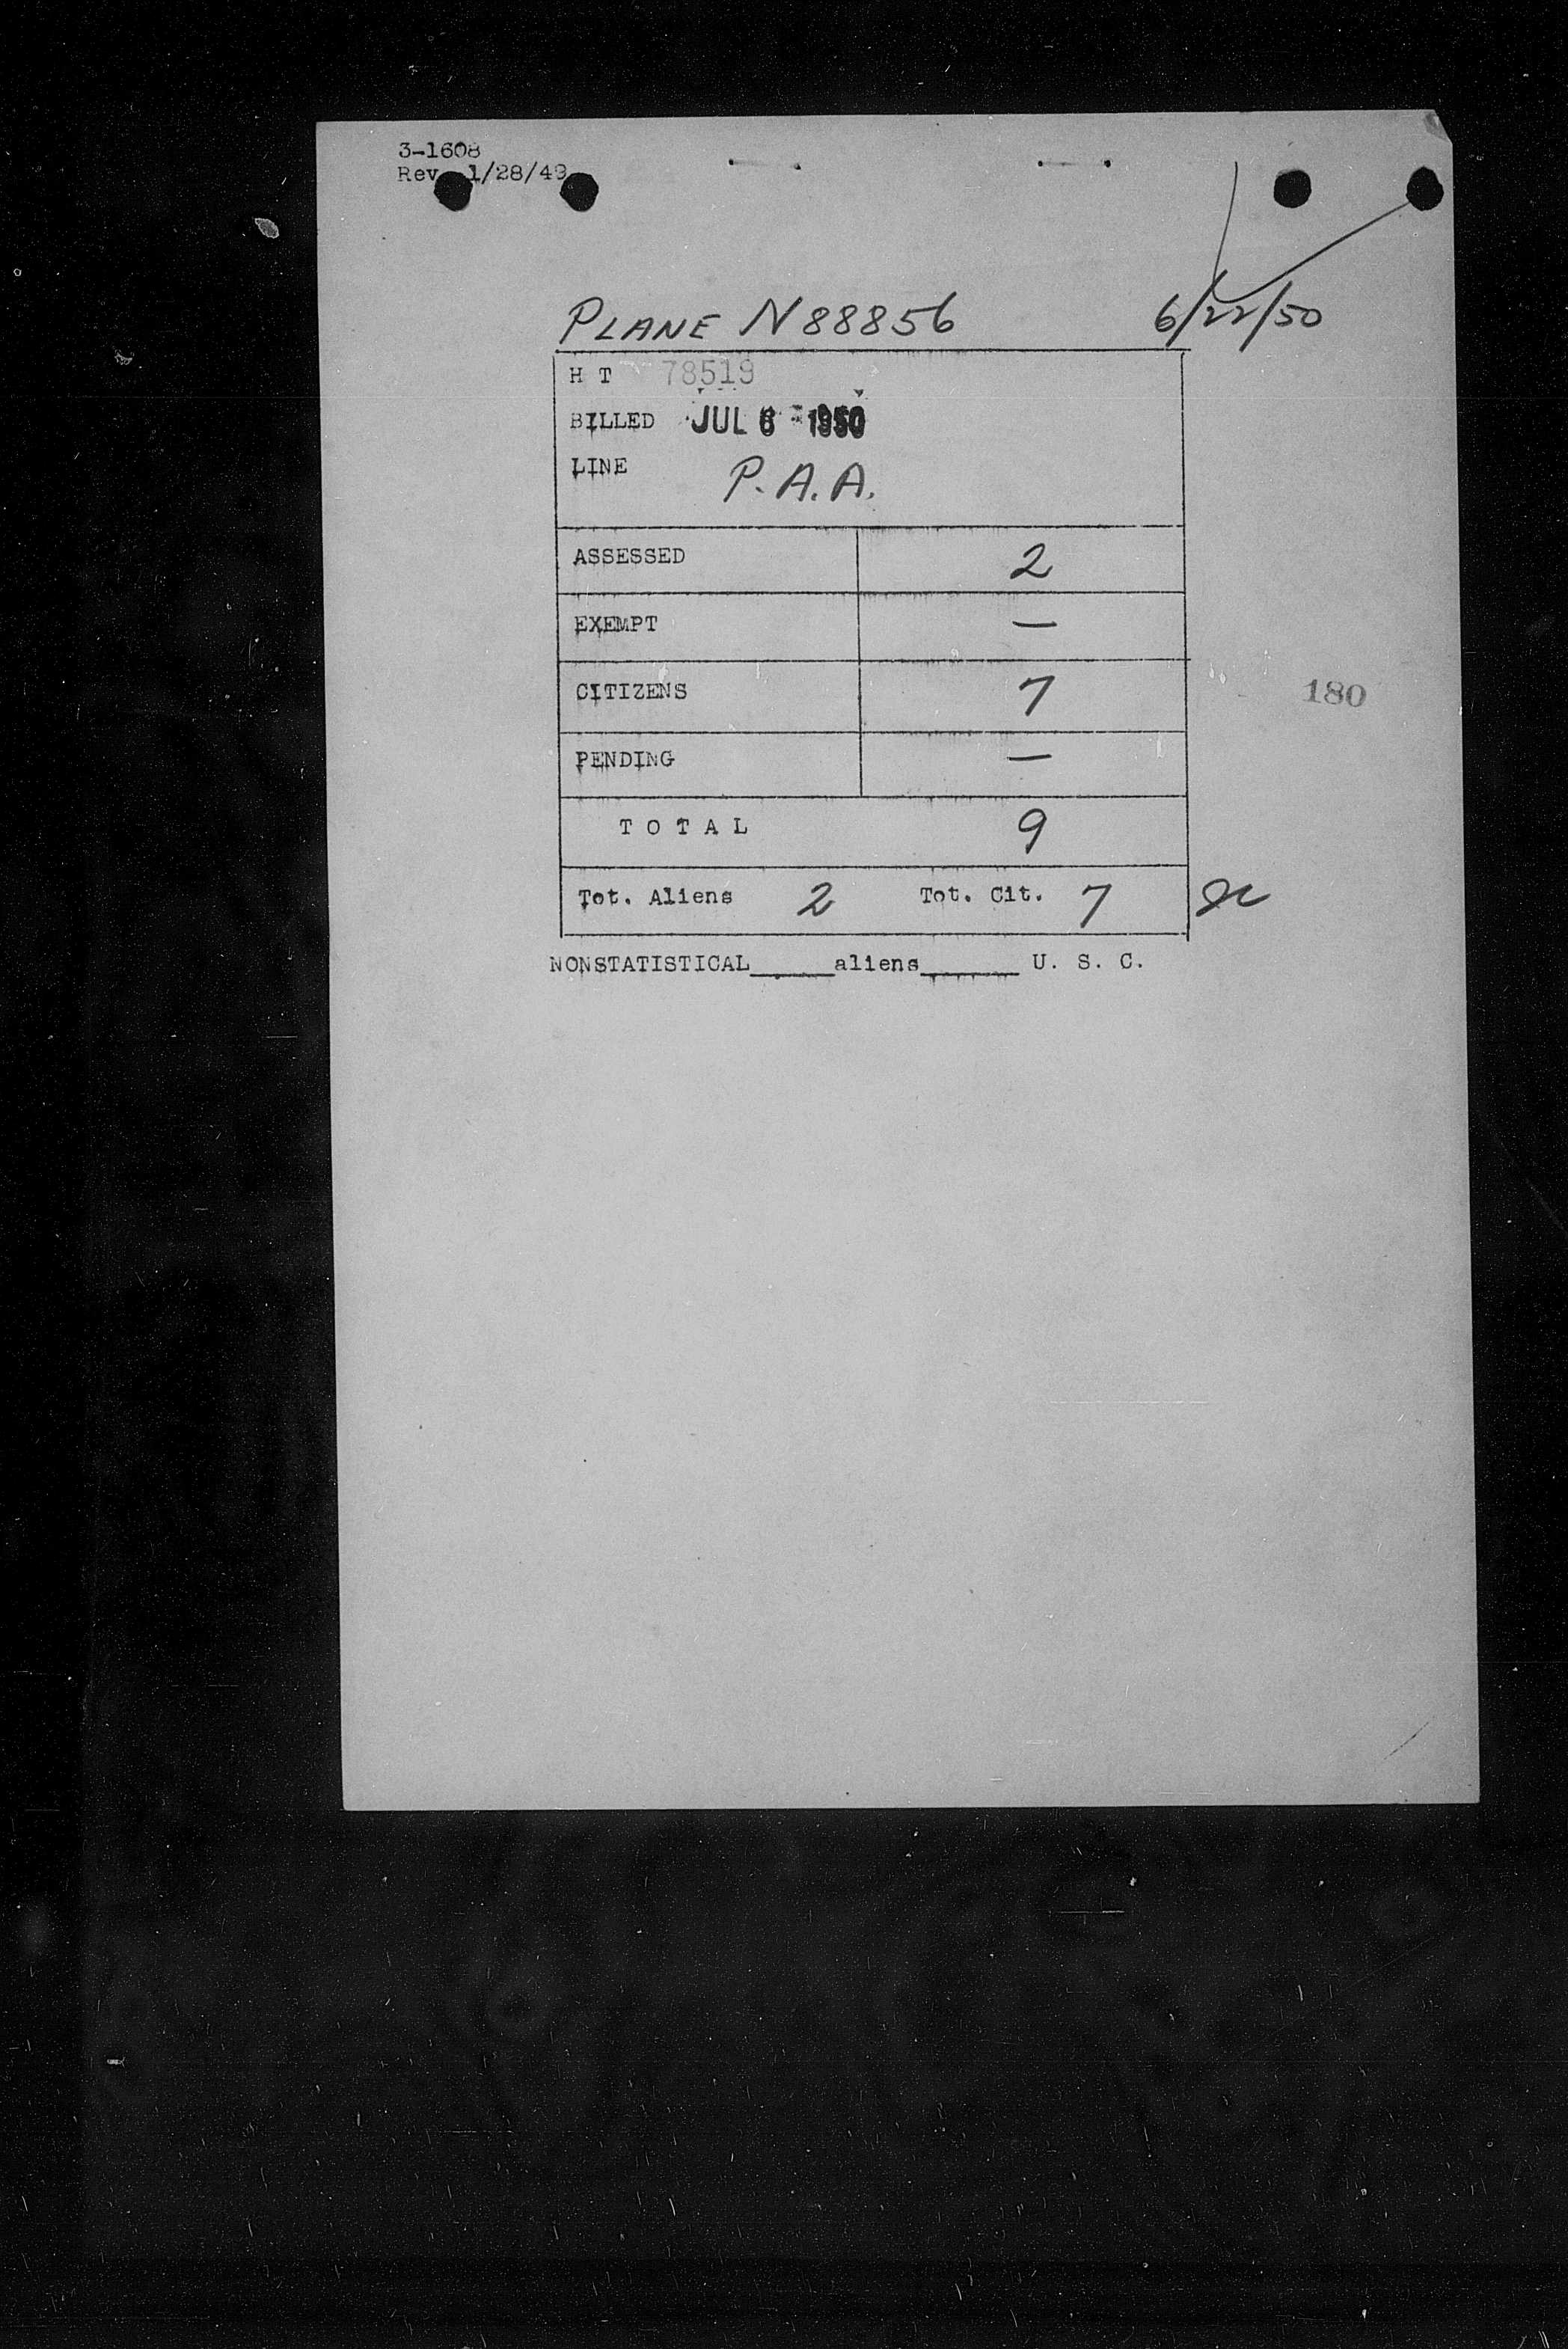 3-1608
Rev. 1/28/49
PLANE N88856 6/22/50
H T 78519
BILLED JUL 6 1950
LINE P.A.A.
ASSESSED 2
EXEMPT —
CITIZENS 7
180
PENDING —
T O T A L 9
Tot. Aliens 2 Tot. Cit. 7
NONSTATISTICAL_____aliens______ U. S. C.